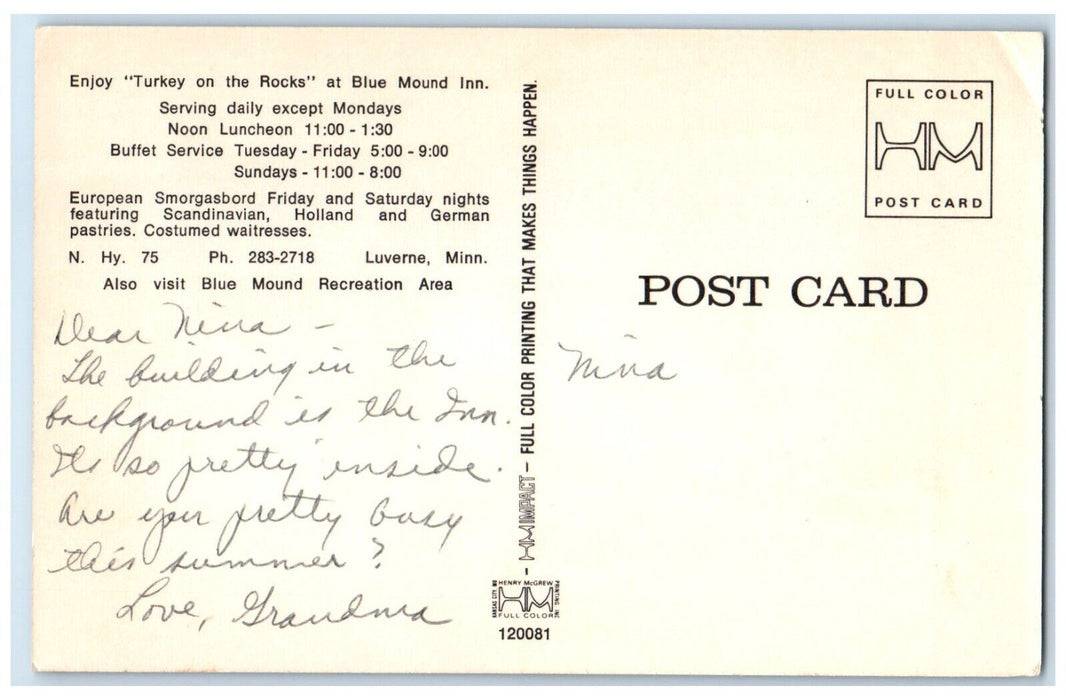 Enjoy "Turkey on the Rocks" at Blue Mound Inn.
Serving daily except Mondays
Noon Luncheon 11:00 - 1:30
Buffet Service Tuesday - Friday 5:00 - 9:00
Sundays - 11:00 - 8:00
European Smorgasbord Friday and Saturday nights
featuring Scandinavian, Holland and German
pastries. Costumed waitresses.
N. Hy. 75 Ph. 283-2718 Luverne, Minn.
Also visit Blue Mound Recreation Area
Dear Nina -
The building in the
background is the Inn.
Its so pretty inside.
Are you pretty busy
this summer?
Love, Grandma
HM IMPACT - FULL COLOR PRINTING THAT MAKES THINGS HAPPEN.
KANSAS CITY MO
HENRY McGREW
PRINTING INC
HM
FULL COLOR
120081
FULL COLOR
HM
POST CARD
POST CARD
Nina